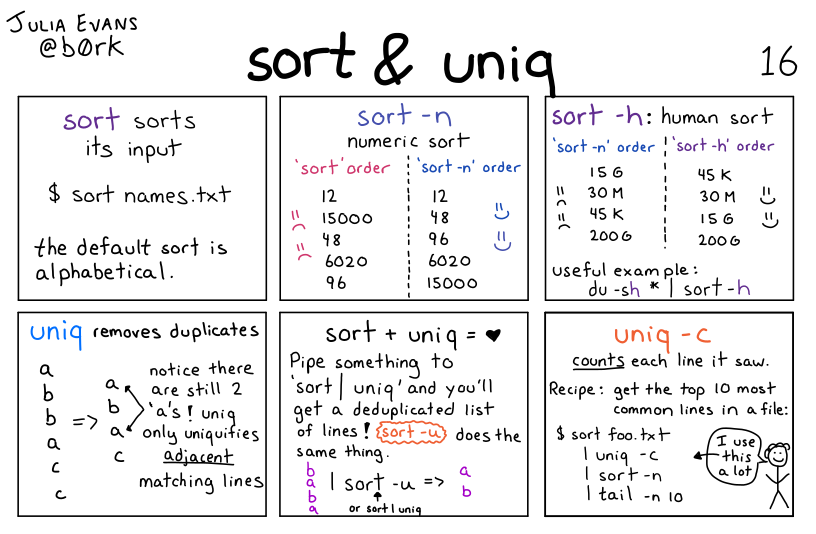 JULIA EVANS
@b0rk
sort & uniq
16
sort sorts
its input
$ sort names.txt
the default sort is
alphabetical.
sort -n
numeric sort
'sort' order
12
15000
48
6020
96
'sort -n' order
12
48
96
6020
15000
sort -h: human sort
'sort -n' order
15G
30M
45K
200G
'sort -h' order
45K
30M
15G
200G
useful example:
du -sh * | sort -h
uniq removes duplicates
a
b
b
a
c
c
=>
a
b
a
c
notice there
are still 2
'a's! uniq
only uniquifies
adjacent
matching lines
sort + uniq = ♥
Pipe something to
'sort | uniq' and you'll
get a deduplicated list
of lines! sort -u does the
same thing.
b
a
b
a
| sort -u =>
a
b
or sort | uniq
uniq -c
counts each line it saw.
Recipe: get the top 10 most
common lines in a file:
$ sort foo.txt
| uniq -c
| sort -n
| tail -n 10
I use
this
a lot